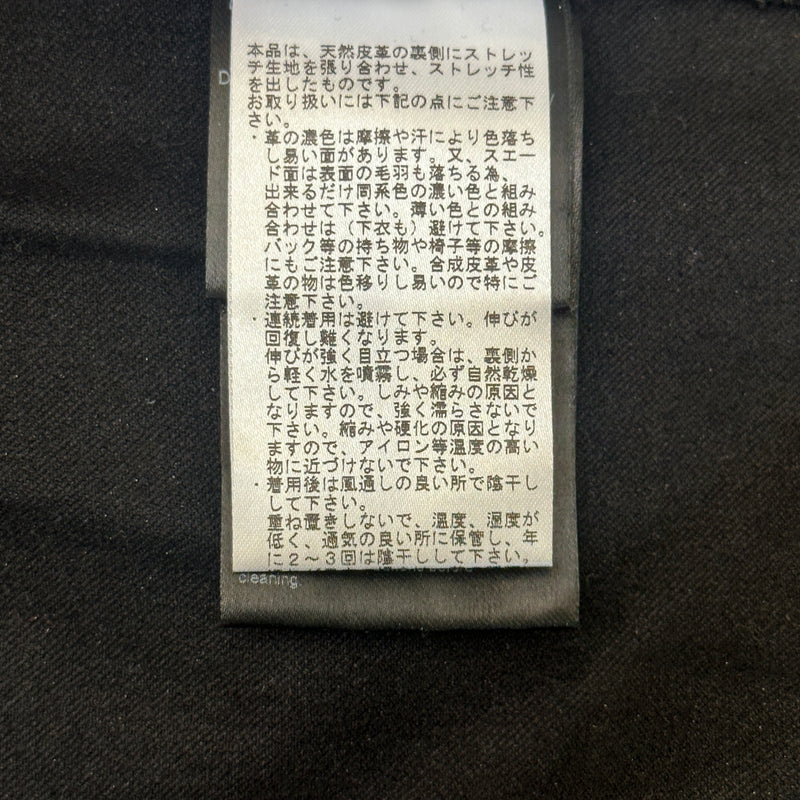 本品は、天然皮革の裏側にストレッ
チ生地を張り合わせ、ストレッチ性
を出したものです。
お取り扱いには下記の点にご注意下
さい。
・革の濃色は摩擦や汗により色落ち
し易い面があります。又、スエー
ド面は表面の毛羽も落ちる為、
出来るだけ同系色の濃い色と組み
合わせて下さい。薄い色との組み
合わせは(下衣も)避けて下さい。
バック等の持ち物や椅子等の摩擦
にもご注意下さい。合成皮革や皮
革の物は色移りし易いので特にご
注意下さい。
・連続着用は避けて下さい。伸びが
回復し難くなります。
伸びが強く目立つ場合は、裏側か
ら軽く水を噴霧し、必ず自然乾燥
して下さい。しみや縮みの原因と
なりますので、強く濡らさないで
下さい。縮みや硬化の原因となり
ますので、アイロン等温度の高い
物に近づけないで下さい。
・着用後は風通しの良い所で陰干し
して下さい。
重ね置きしないで、温度、湿度が
低く、通気の良い所に保管し、年
に2〜3回は陰干しして下さい。
cleaning.